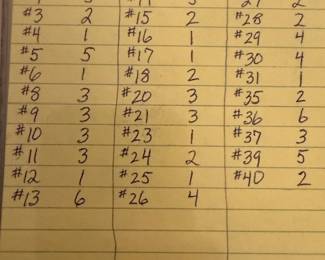 #3 2 #15 2 #28 2
#4 1 #16 1 #29 4
#5 5 #17 1 #30 4
#6 1 #18 2 #31 1
#8 3 #20 3 #35 2
#9 3 #21 3 #36 6
#10 3 #23 1 #37 3
#11 3 #24 2 #39 5
#12 1 #25 1 #40 2
#13 6 #26 4